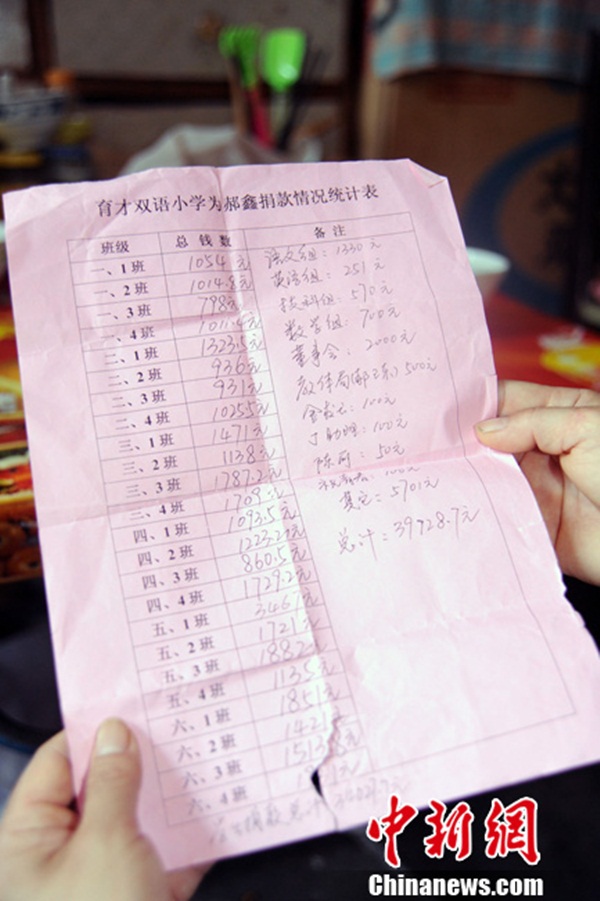 育才双语小学为郝鑫捐款情况统计表
班级 总 钱 数 备 注
一、1 班 1054 元
一、2 班 1014.8元
一、3 班 798元
一、4 班 1011.4元
二、1 班 1323.5元
二、2 班 936元
二、3 班 931元
二、4 班 1025.5元
三、1 班 1471元
三、2 班 1138元
三、3 班 1787.2元
三、4 班 1709
四、1 班 1093.5元
四、2 班
四、3 班 860.5元
四、4 班 1729.2元
五、1 班
五、2 班 1721元
五、3 班
五、4 班 1135
六、1 班 1851元
六、2 班 1421
六、3 班
六、4 班
语文组：1330元
英语组：251元
技科组：570元
数学组：700元
董事会：2000元
500元
100元
100元
50元
100元
其它：5701元
总计：39728.7元
学生捐款总计
中新网
Chinanews.com